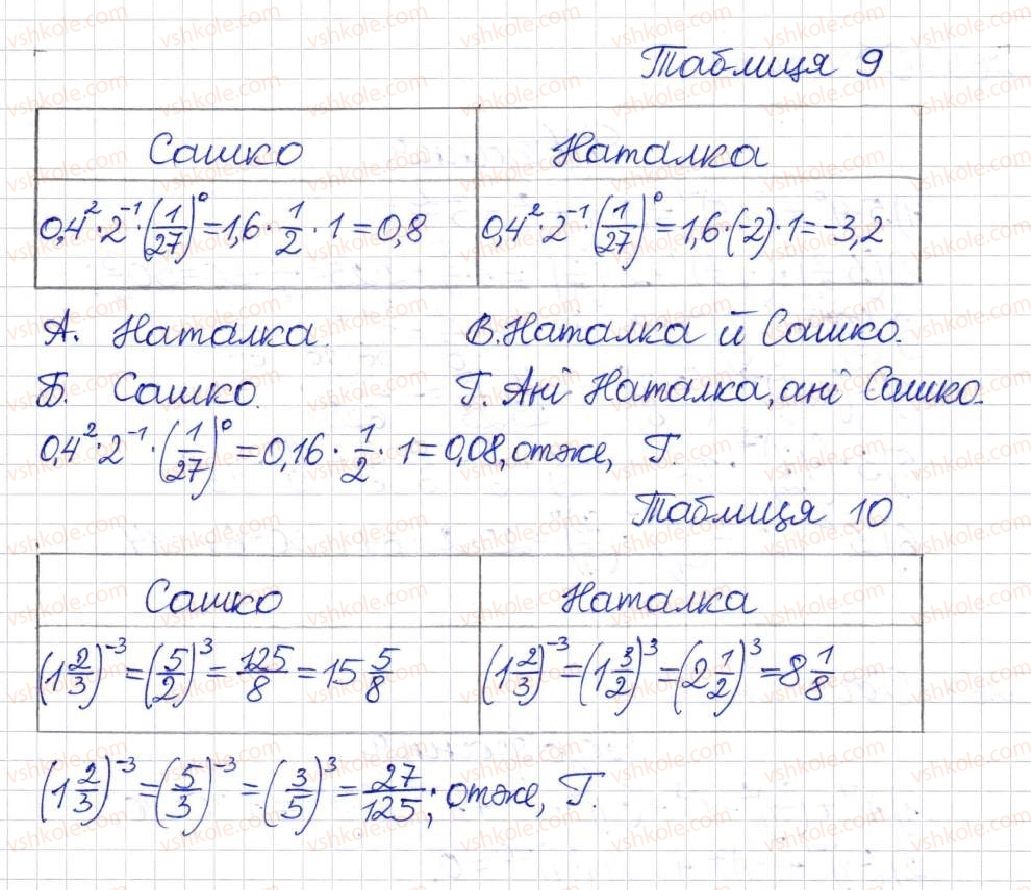 Таблиця 9
Сашко Наталка
0,4²·2⁻¹·(1/27)⁰=1,6·1/2·1=0,8 0,4²·2⁻¹·(1/27)⁰=1,6·(-2)·1=-3,2
А. Наталка. В. Наталка й Сашко.
Б. Сашко. Г. Ані Наталка, ані Сашко.
0,4²·2⁻¹·(1/27)⁰=0,16·1/2·1=0,08, отже, Г.
Таблиця 10
Сашко Наталка
(1 2/3)⁻³=(5/2)³=125/8=15 5/8 (1 2/3)⁻³=(1 3/2)³=(2 1/2)³=8 1/8
(1 2/3)⁻³=(5/3)⁻³=(3/5)³=27/125; отже, Г.
vshkole.com